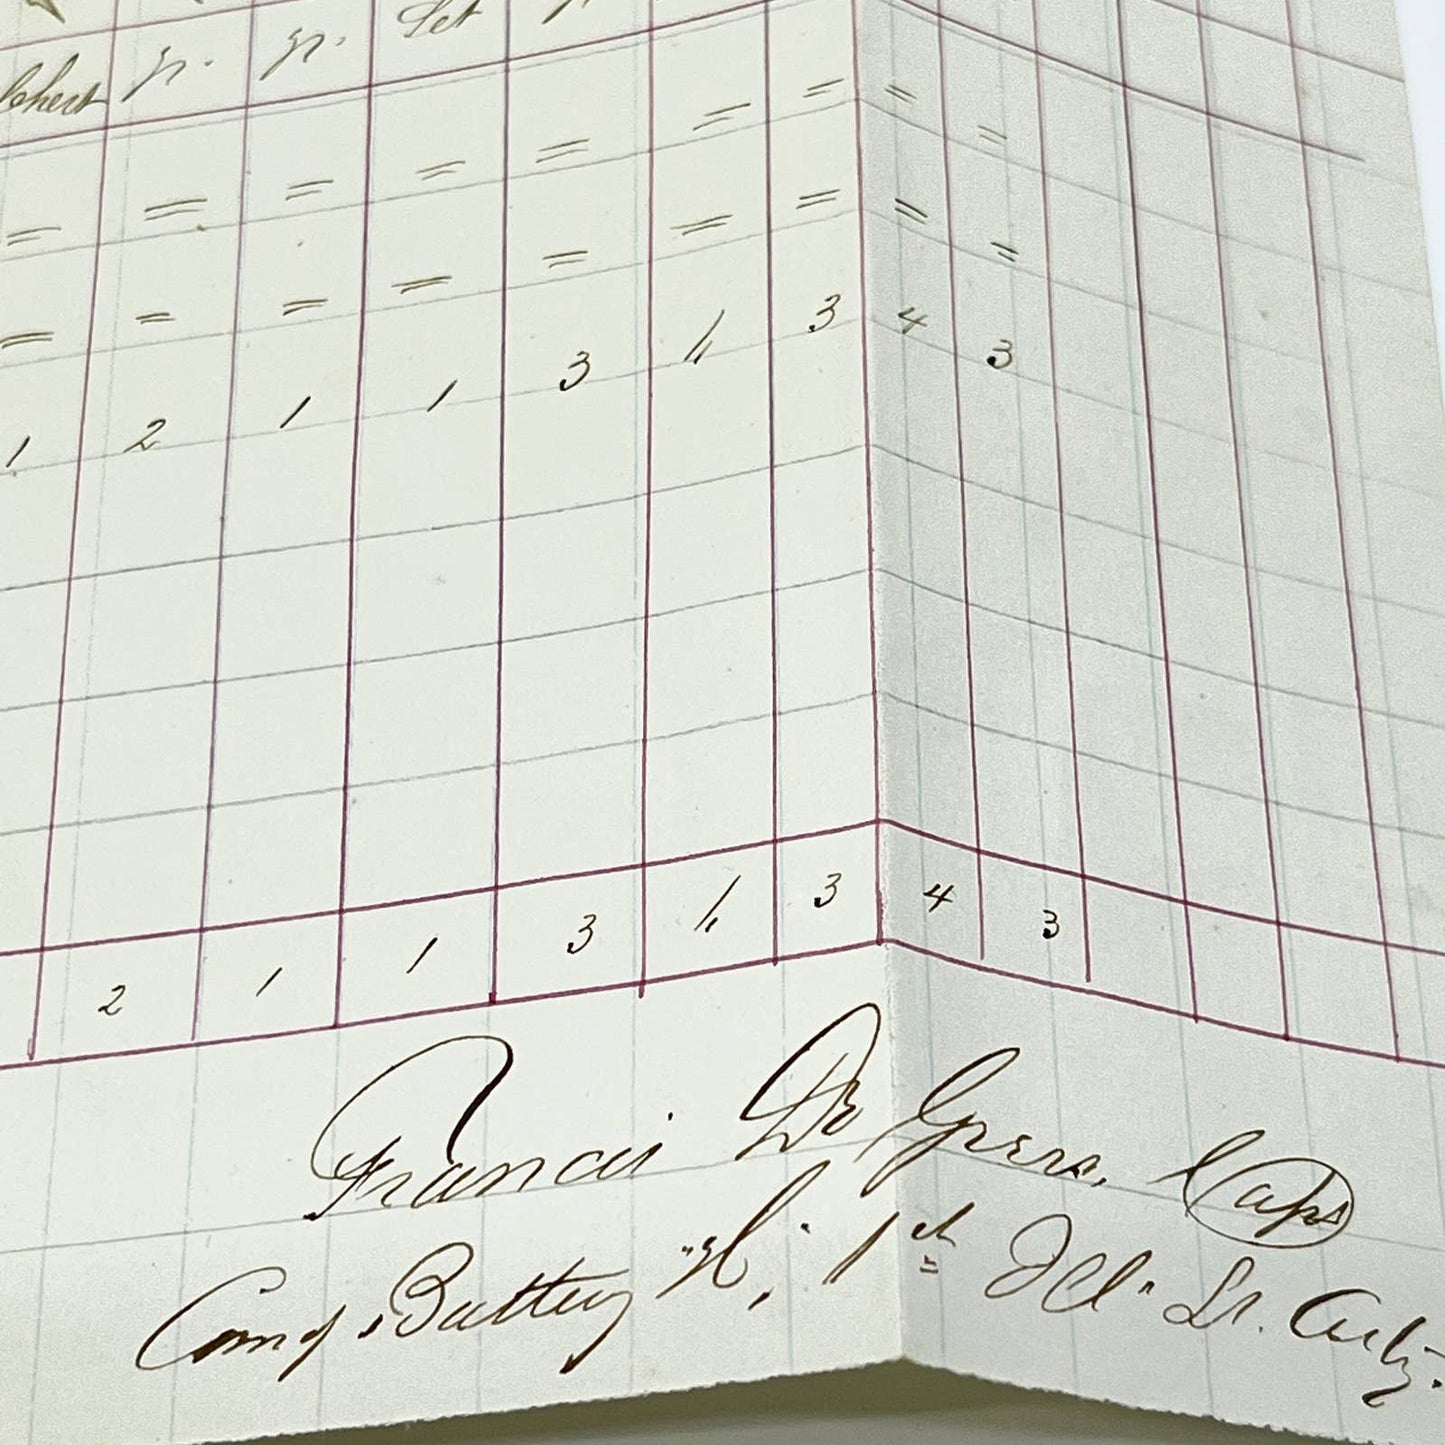 Chest pr. pr. Set
= = = = = = = = =
= = = = = = = = =
1 2 1 1 3 1 3 4 3
2 1 1 3 1 3 4 3
Francis De Gress, Capt
Comd'g Battery "H," 1st Ill. Lt. Arty.